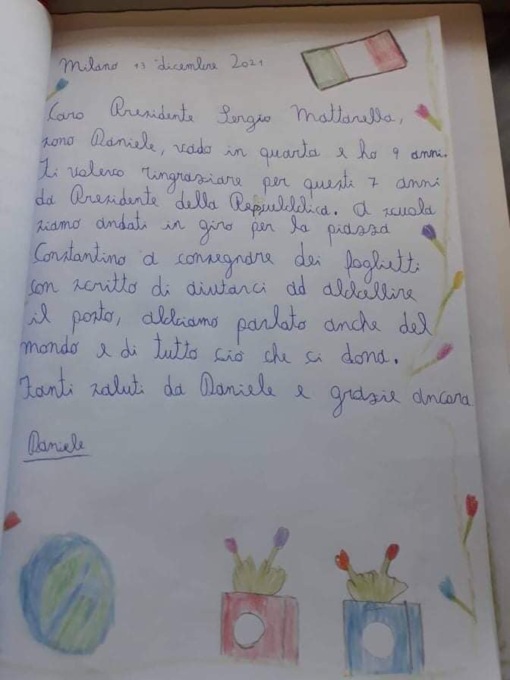 Milano 13 dicembre 2021
Caro Presidente Sergio Mattarella,
sono Daniele, vado in quarta e ho 9 anni.
Ti volevo ringraziare per questi 7 anni
da Presidente della Repubblica. A scuola
siamo andati in giro per la piazza
Constantino a consegnare dei foglietti
con scritto di aiutarci ad abbellire
il posto, abbiamo parlato anche del
mondo e di tutto ciò che ci dona.
Tanti saluti da Daniele e grazie ancora
Daniele